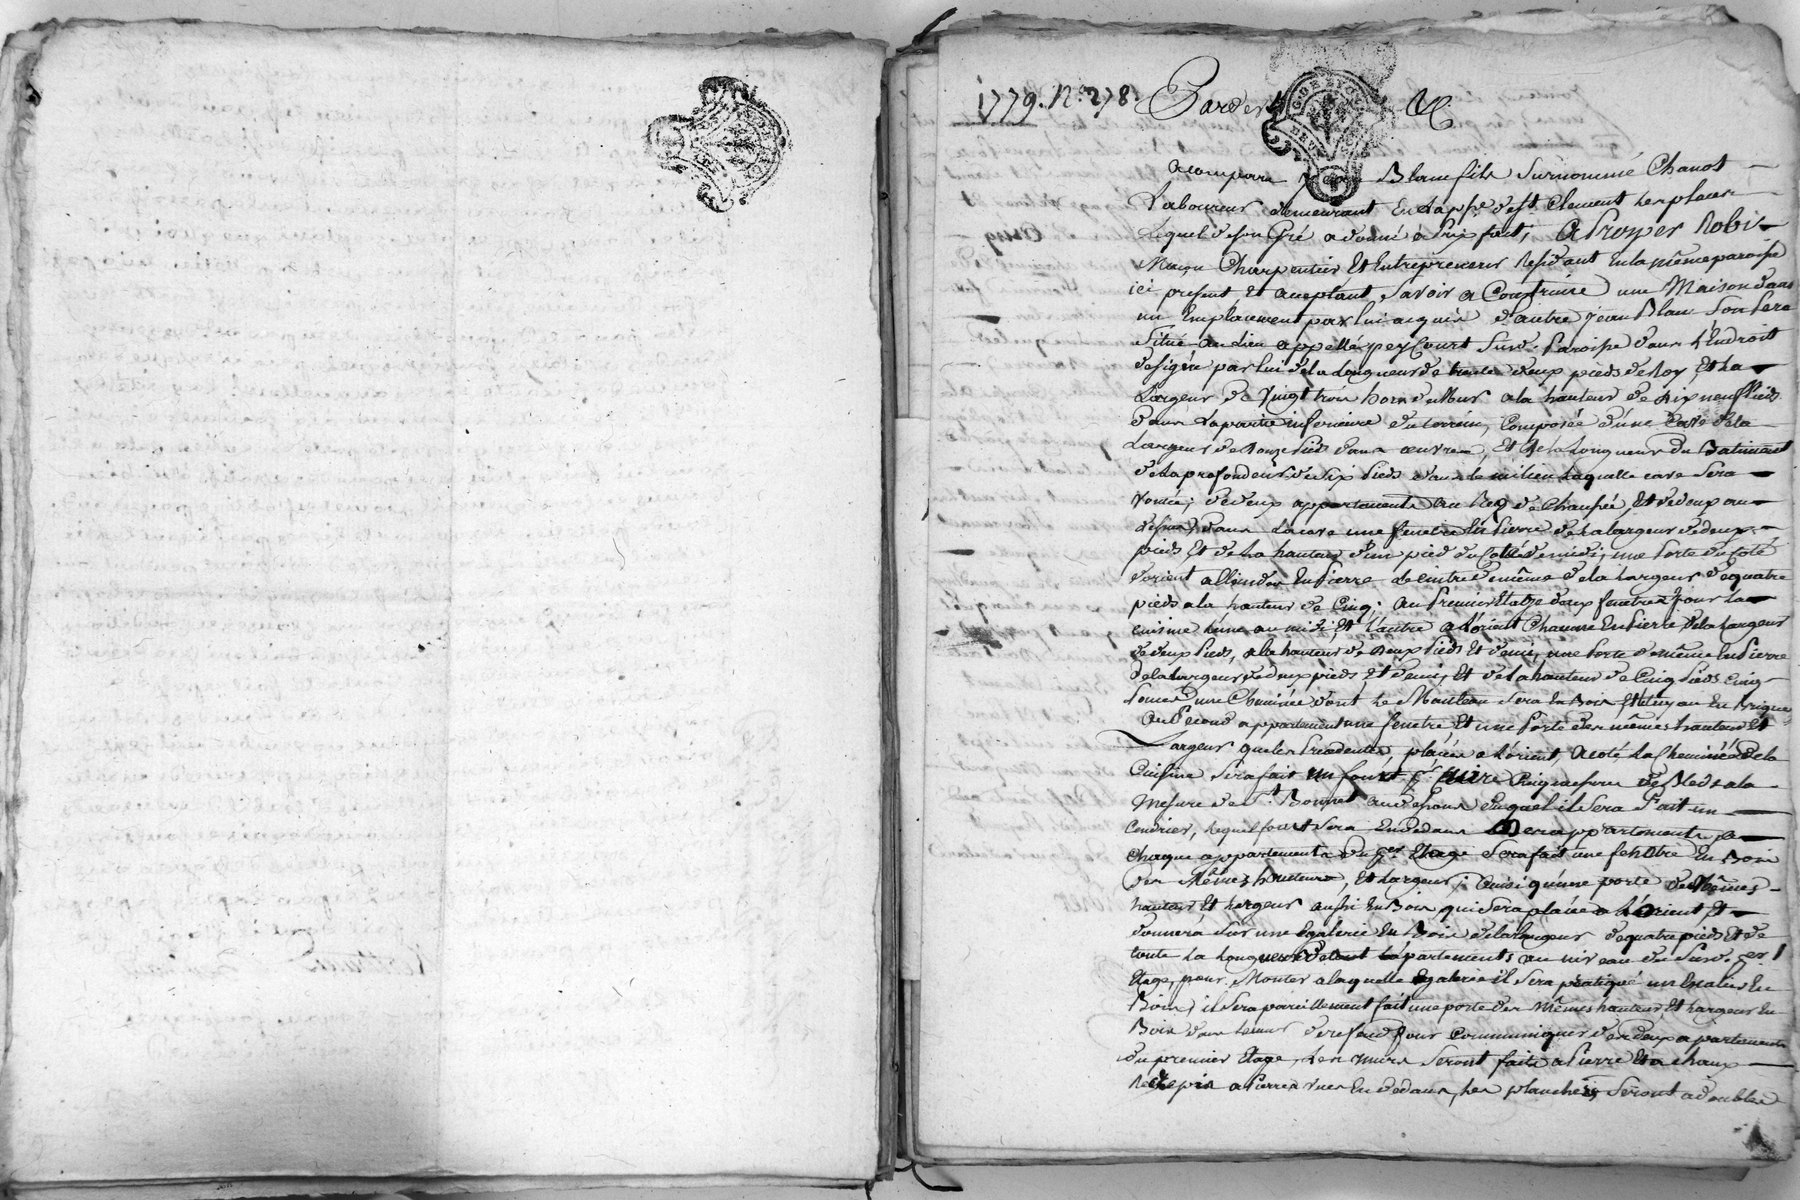 1779. N.º 278. Pardev &c.
a comparu Jean Blanc fils Surnommé Chanot
Laboureur demeurant En Lapp.se de St. Clement les places
Lequel de son Gré a donné a Prix fait, A Proyer Robi
Maçon Charpentier Et Entrepreneur Residant En la même paroisse
ici present Et acceptant, Savoir a Construire une Maison dans
un Emplacement par lui acquis d'autre Jean Blanc Son Pere
Situé au lieu appellé pey Court Susd. Paroisse dans L'Endroit
designé par lui de la Longueur de trente deux pieds de Roy, Et La
Largeur de Vingt trois hors de Murs a la hauteur de dix neuf Pieds
dans La partie inferieure du terrein, Composée d'une Cave de la
Largeur de Douze Pieds dans œuvre, Et de la Longueur du Batiment
de La profondeur de Six Pieds dans le milieu Laquelle cave Sera
Voutée; de deux appartements au Rez de Chaussée, Et de deux au
dessus, dans La cave une fenetre En Pierre de La largeur de deux
pieds, Et de La hauteur d'un pied du Coté de midi, une Porte du Coté
d'orient En Pierre Le cintre de même de la Largeur de quatre
pieds a la hauteur de Cinq; au Premier Etage deux fenetres Pour La
cuisine L'une au midi, Et L'autre a L'orient Chacune En Pierre de la Largeur
de deux Pieds, a la hauteur de Deux Pieds Et demi, une Porte de même En Pierre
de la Largeur de deux pieds, Et demi, Et de La hauteur de Cinq Pieds Cinq
Pouces, une Cheminée dont Le Manteau Sera En Bois Et Le tuyau En Brique
Au Second appartement une fenetre Et une Porte des mêmes hauteur Et
Largeur que les Precedentes, placées a L'orient, a coté La Cheminée de la
Cuisine Sera fait un fourt p.r Cuire Cinq mesures de Bled a la
Mesure de St. Bonnet au dessous duquel il Sera Fait un
Cendrier, Lequel fourt Sera En Dedans appartements, a
Chaque appartements du p.er Etage Sera fait une fenêtre En Bois
des Mêmes hauteurs, Et Largeur; ainsi qu'une porte des Mêmes
hauteur Et Largeur aussi En Bois qui Sera placée a L'orient Et
donnera Sur une Egalerie En Bois de la Largeur de quatre pieds Et de
toute La Longueur appartements au niveau du Susd. 1er
Etage, pour Monter a laquelle Egalerie il Sera pratiqué un Escalier En
Bois, il Sera pareillement fait une porte des Mêmes hauteur, Et Largeur En
Bois dans Le mur de refend Pour Communiquer des deux appartements
du premier Etage, Les murs Seront faits a Pierre Et a chaux
Recrepis a Pierres vues En dedans, Les planchers Seront a doubles